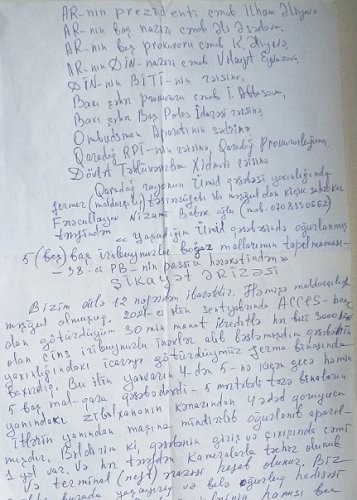 AR-nın prezidenti cənab İlham Əliyevə,
AR-nın baş naziri cənab Əli Əsədova,
AR-nın baş prokuroru cənab K. Əliyevə,
AR-nın DİN-naziri cənab Vilayət Eyvazova,
DİN-nin BİTİ-nin rəisinə,
Bakı şəhər prokuroru cənab İ. Abbasova,
Bakı şəhər Baş Polis İdarəsi rəisinə,
Ombudsman Aparatının sədrinə,
Qaradağ RPİ-nin rəisinə, Qaradağ Prokurorluğuna,
Dövlət Təhlükəsizlik Xidməti rəisinə
Qaradağ rayonun Ümid qəsəbəsi yaxınlığında
fermer (maldarlıq) təsərrüfatı ilə məşğul olan kiçik sahibkar
Fərəcullayev Nizami Babək oğlu (mob.
tərəfindən
"Yaşadığım Ümid qəsəbəsində oğurlanmış
5 (beş) baş iribuynuzlu boğaz mallarımın tapılmaması
-38-ci PB-nin passiv hərəkətindən"
ŞİKAYƏT ƏRİZƏSİ
Bizim ailə 12 nəfərdən ibarətdir. Həmişə maldarlıqla
məşğul olmuşuq. 2021-ci ilin sentyabrında ACCES-bank-
dan götürdüyüm 30 min manat kreditlə hər biri 3000 AZN
olan cins iribuynuzlu inəklər alıb bəsləmişdim qəsəbənin
yaxınlığındakı icarəyə götürdüyümüz ferma binasında
saxlayırdıq. Bu ilin yanvarın 4-dən 5-nə keçən gecə həmin
5 baş mal-qara qəsəbədəki - 5 mərtəbəli təzə binaların
yanındakı zibilxananın kənarından 4 ədəd qoruyucu
itlərin yanından maşına mindirilib oğurlanıb aparıl-
mışdır. Bildirim ki, qəsəbənin giriş və çıxışında cəmi
1 yol var. Və hər tərəfdən kameralarla təchiz olunub
və terminal (neft) ərazisi hesab olunur. Biz
burada yaşayırıq və belə oğurluq hadisəsi